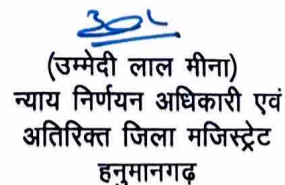 (उम्मेदी लाल मीना)
न्याय निर्णयन अधिकारी एवं
अतिरिक्त जिला मजिस्ट्रेट
हनुमानगढ़